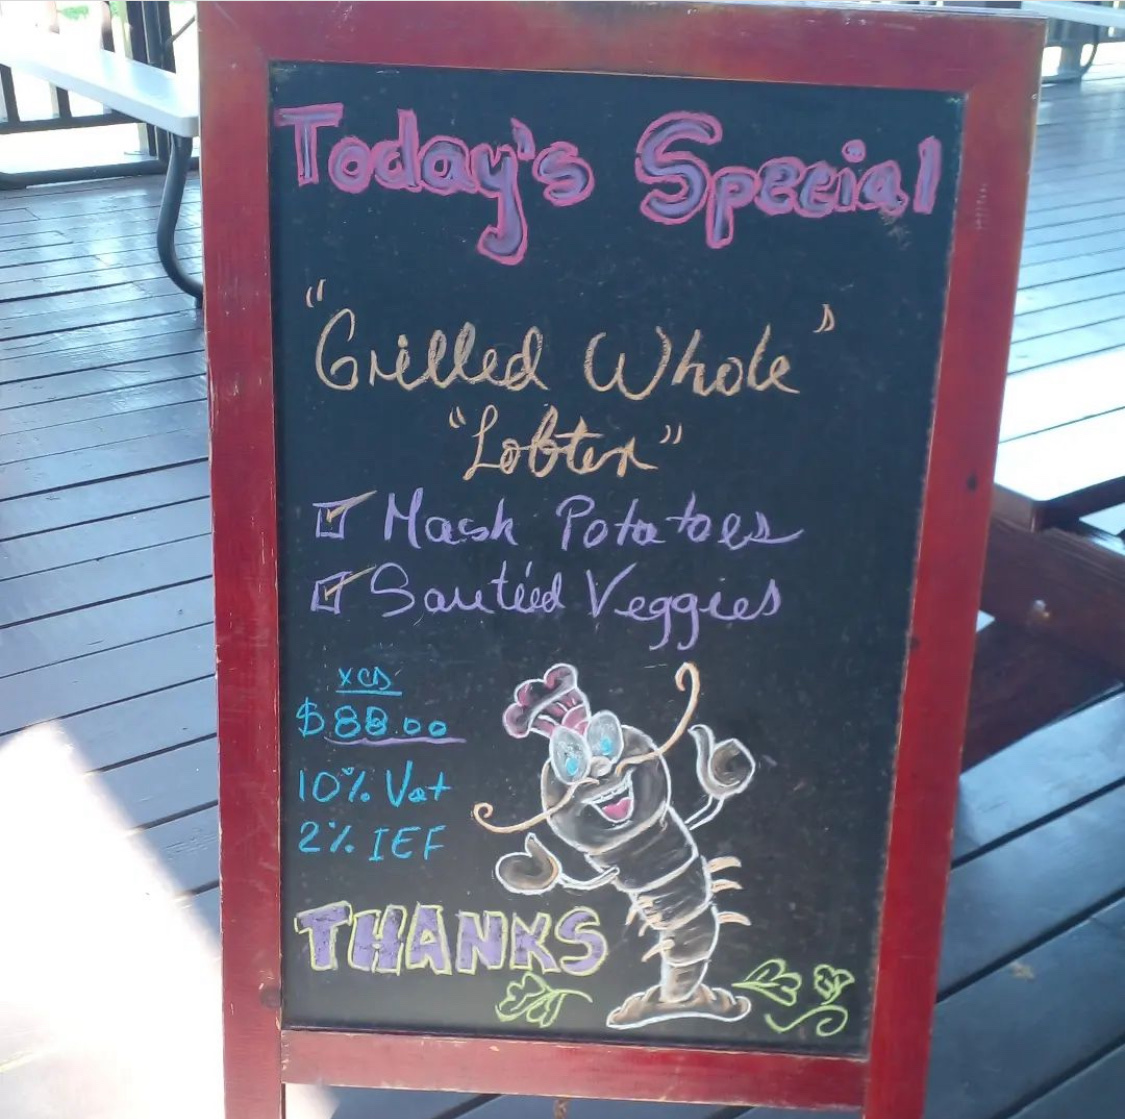 Today's Special
"Grilled Whole"
"Lobter"
Mash Potatoes
Sautéed Veggies
XCD
$88.00
10% Vat
2% IEF
THANKS